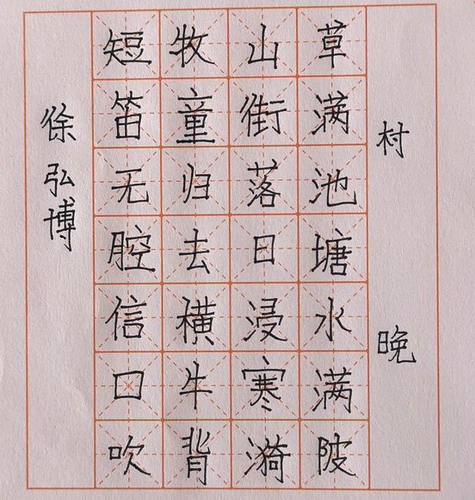 村晚
草满池塘水满陂
山衔落日浸寒漪
牧童归去横牛背
短笛无腔信口吹
徐弘博